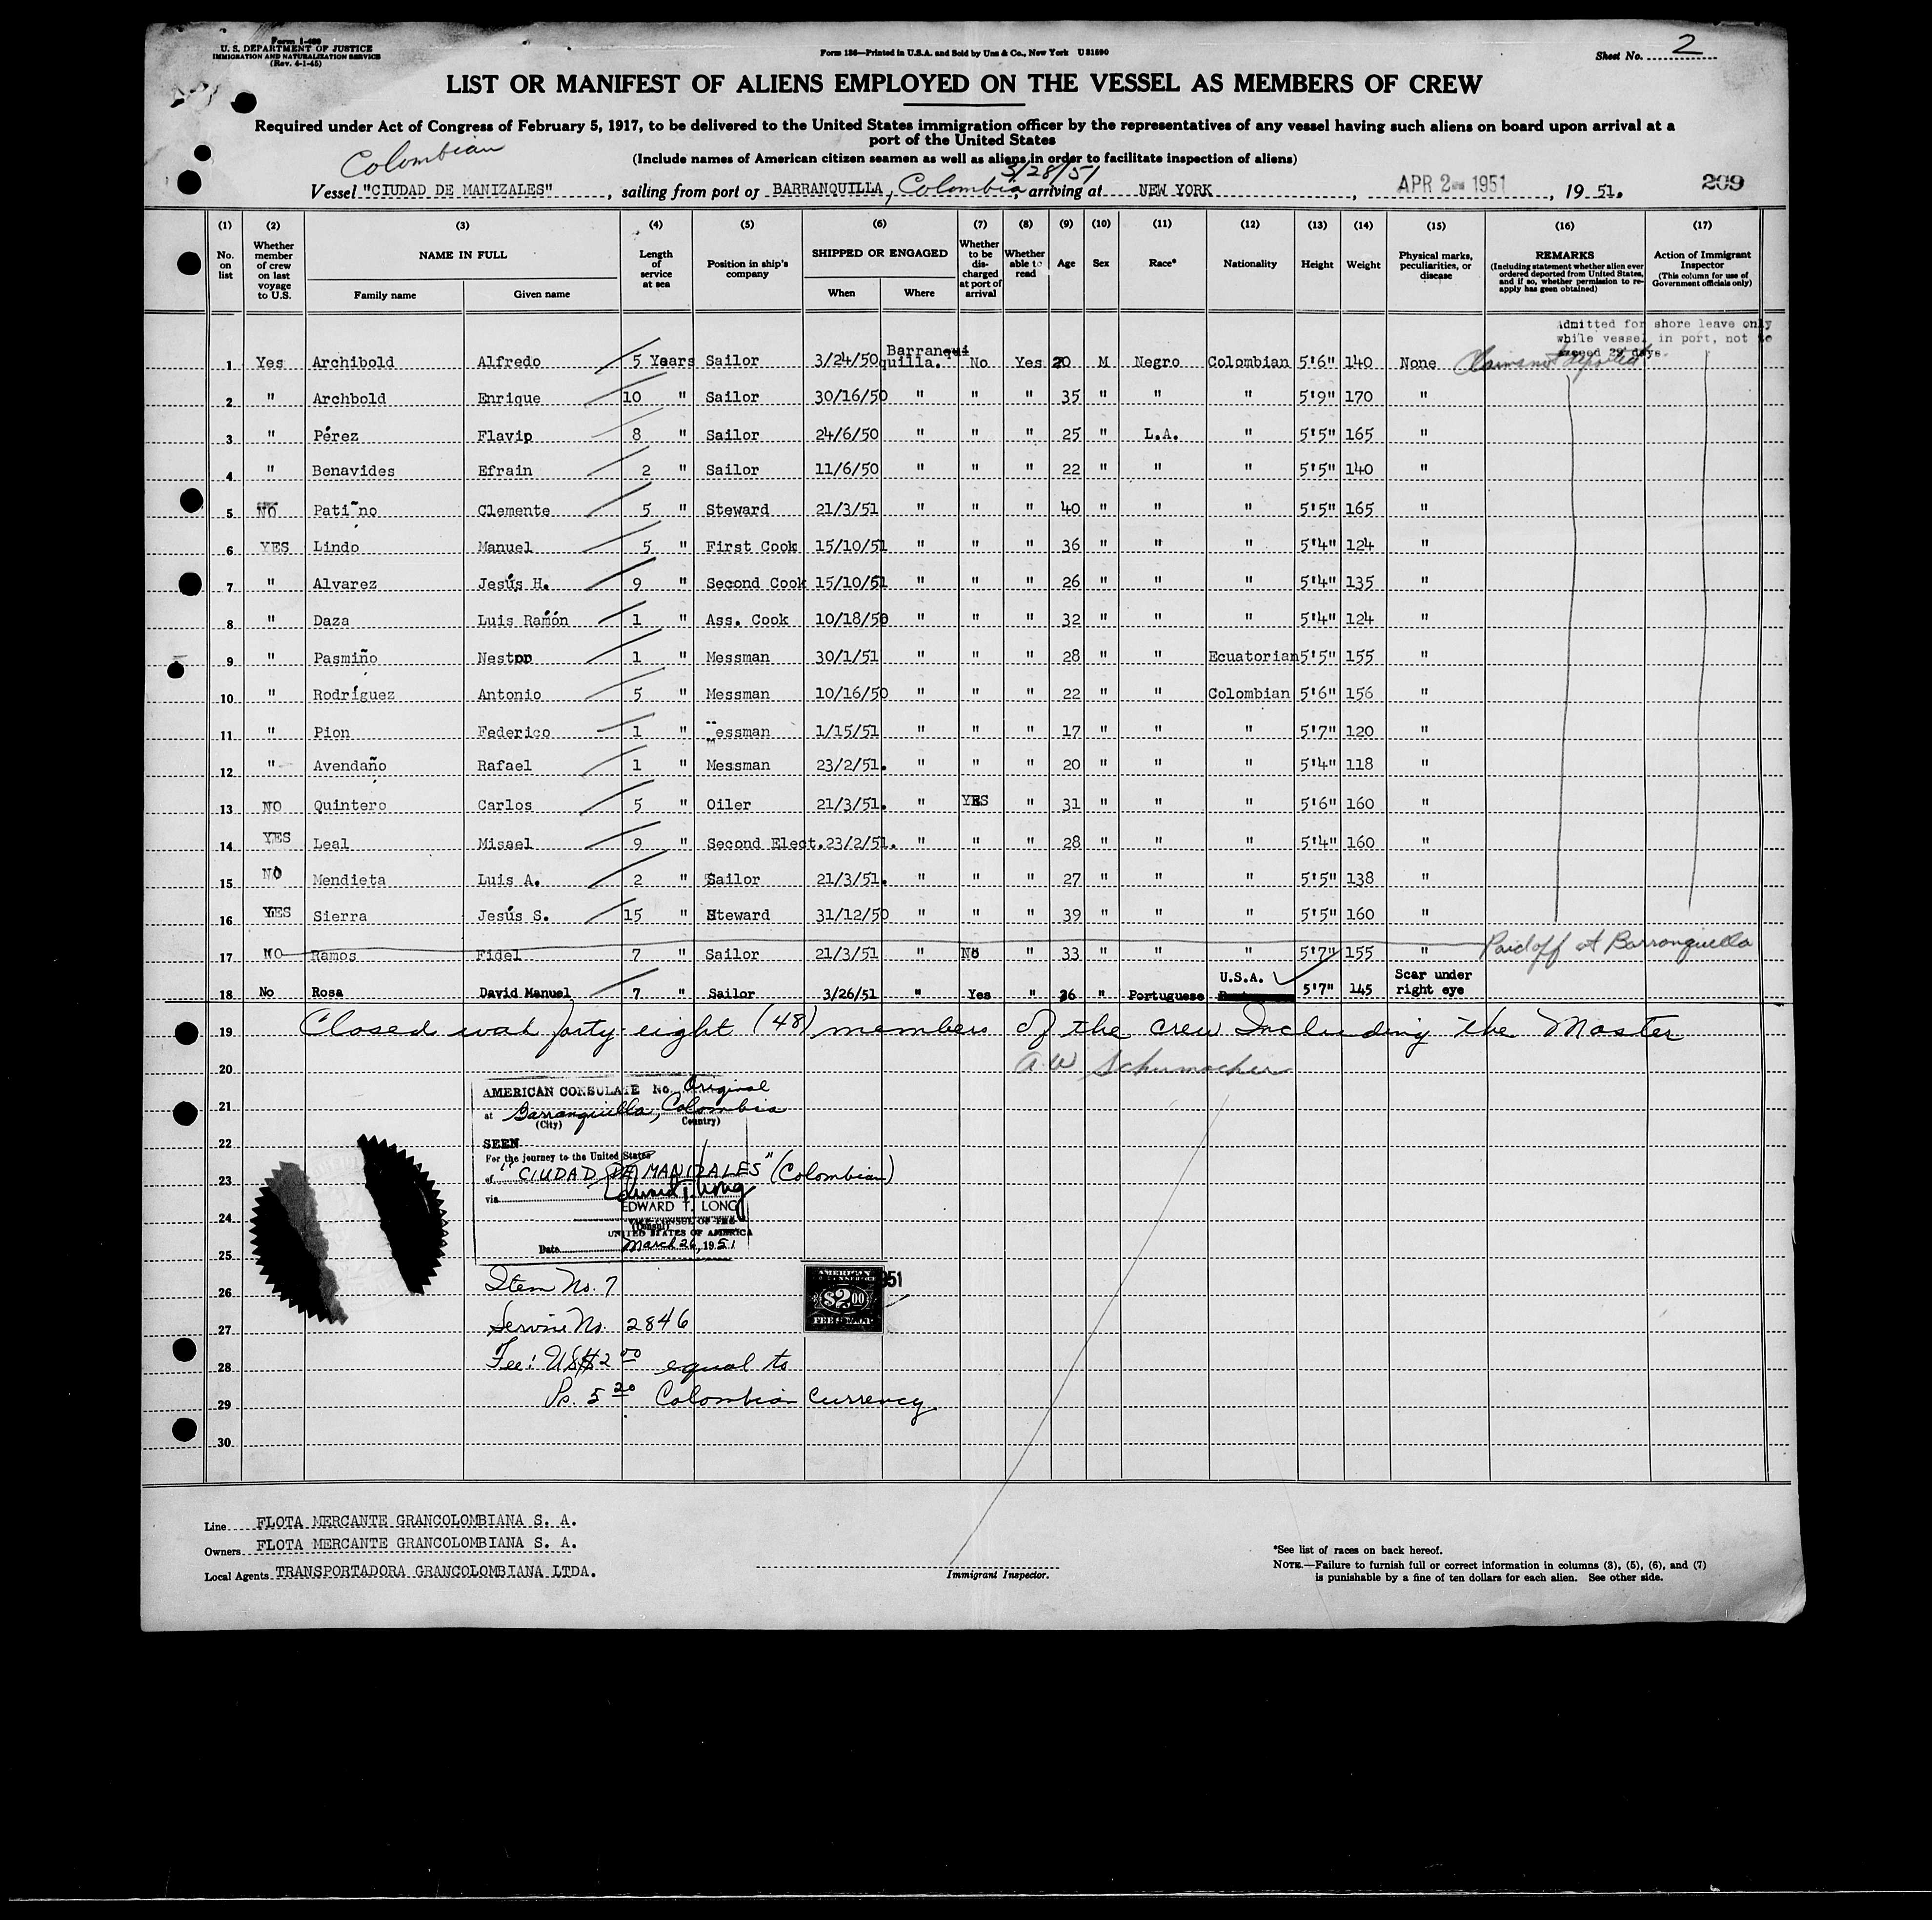 Form I-480
U. S. DEPARTMENT OF JUSTICE
IMMIGRATION AND NATURALIZATION SERVICE
(Rev. 4-1-45)
Form 186—Printed in U.S.A. and Sold by Unz & Co., New York U 81590
Sheet No. 2
LIST OR MANIFEST OF ALIENS EMPLOYED ON THE VESSEL AS MEMBERS OF CREW
Required under Act of Congress of February 5, 1917, to be delivered to the United States immigration officer by the representatives of any vessel having such aliens on board upon arrival at a
port of the United States
(Include names of American citizen seamen as well as aliens in order to facilitate inspection of aliens)
Colombian
3/28/51
Vessel "CIUDAD DE MANIZALES", sailing from port of BARRANQUILLA, Colombia, arriving at NEW YORK, APR 2 1951, 19 51.
209
(1) (2) (3) (4) (5) (6) (7) (8) (9) (10) (11) (12) (13) (14) (15) (16) (17)
No. on list
Whether member of crew on last voyage to U.S.
NAME IN FULL
Family name Given name
Length of service at sea
Position in ship's company
SHIPPED OR ENGAGED
When Where
Whether to be discharged at port of arrival
Whether able to read
Age
Sex
Race*
Nationality
Height
Weight
Physical marks, peculiarities, or disease
REMARKS
(Including statement whether alien ever ordered deported from United States, and if so, whether permission to reapply has been obtained)
Action of Immigrant Inspector
(This column for use of Government officials only)
Admitted for shore leave only
while vessel in port, not to
exceed 29 days.
1 Yes Archibold Alfredo 5 Years Sailor 3/24/50 Barranquilla. No Yes 20 M Negro Colombian 5'6" 140 None Claims not deported
2 " Archbold Enrique 10 " Sailor 30/16/50 " " " 35 " " " 5'9" 170 "
3 " Pérez Flavio 8 " Sailor 24/6/50 " " " 25 " L.A. " 5'5" 165 "
4 " Benavides Efrain 2 " Sailor 11/6/50 " " " 22 " " " 5'5" 140 "
5 NO Patiño Clemente 5 " Steward 21/3/51 " " " 40 " " " 5'5" 165 "
6 YES Lindo Manuel 5 " First Cook 15/10/51 " " " 36 " " " 5'4" 124 "
7 " Alvarez Jesús H. 9 " Second Cook 15/10/51 " " " 26 " " " 5'4" 135 "
8 " Daza Luis Ramón 1 " Ass. Cook 10/18/50 " " " 32 " " " 5'4" 124 "
9 " Pasmiño Nestor 1 " Messman 30/1/51 " " " 28 " " Ecuatorian 5'5" 155 "
10 " Rodríguez Antonio 5 " Messman 10/16/50 " " " 22 " " Colombian 5'6" 156 "
11 " Pion Federico 1 " Messman 1/15/51 " " " 17 " " " 5'7" 120 "
12 " Avendaño Rafael 1 " Messman 23/2/51. " " " 20 " " " 5'4" 118 "
13 NO Quintero Carlos 5 " Oiler 21/3/51. " YES " 31 " " " 5'6" 160 "
14 YES Leal Misael 9 " Second Elect. 23/2/51. " " " 28 " " " 5'4" 160 "
15 NO Mendieta Luis A. 2 " Sailor 21/3/51. " " " 27 " " " 5'5" 138 "
16 YES Sierra Jesús S. 15 " Steward 31/12/50 " " " 39 " " " 5'5" 160 "
17 NO Ramos Fidel 7 " Sailor 21/3/51 " No " 33 " " " 5'7" 155 " Paid off at Barranquilla
18 No Rosa David Manuel 7 " Sailor 3/26/51 " Yes " 36 " Portuguese U.S.A. 5'7" 145 Scar under right eye
19 Closed with forty eight (48) members of the crew Including the Master
20 A W Schumacher
21
22
23
24
25
26
27
28
29
30
AMERICAN CONSULATE No. Original
at Barranquilla, Colombia
(City) (Country)
SEEN
For the journey to the United States
of "CIUDAD DE MANIZALES" (Colombian)
via
Edward T. Long
EDWARD T. LONG
VICE CONSUL OF THE
(Consul)
UNITED STATES OF AMERICA
Date March 26, 1951
Item No. 7
Service No. 2846
Fee: US$2 00 equal to
Ps. 5 20 Colombian Currency
AMERICAN
$2.00
FEE STAMP
951
Line FLOTA MERCANTE GRANCOLOMBIANA S. A.
Owners FLOTA MERCANTE GRANCOLOMBIANA S. A.
Local Agents TRANSPORTADORA GRANCOLOMBIANA LTDA.
Immigrant Inspector.
*See list of races on back hereof.
NOTE.—Failure to furnish full or correct information in columns (3), (5), (6), and (7)
is punishable by a fine of ten dollars for each alien. See other side.